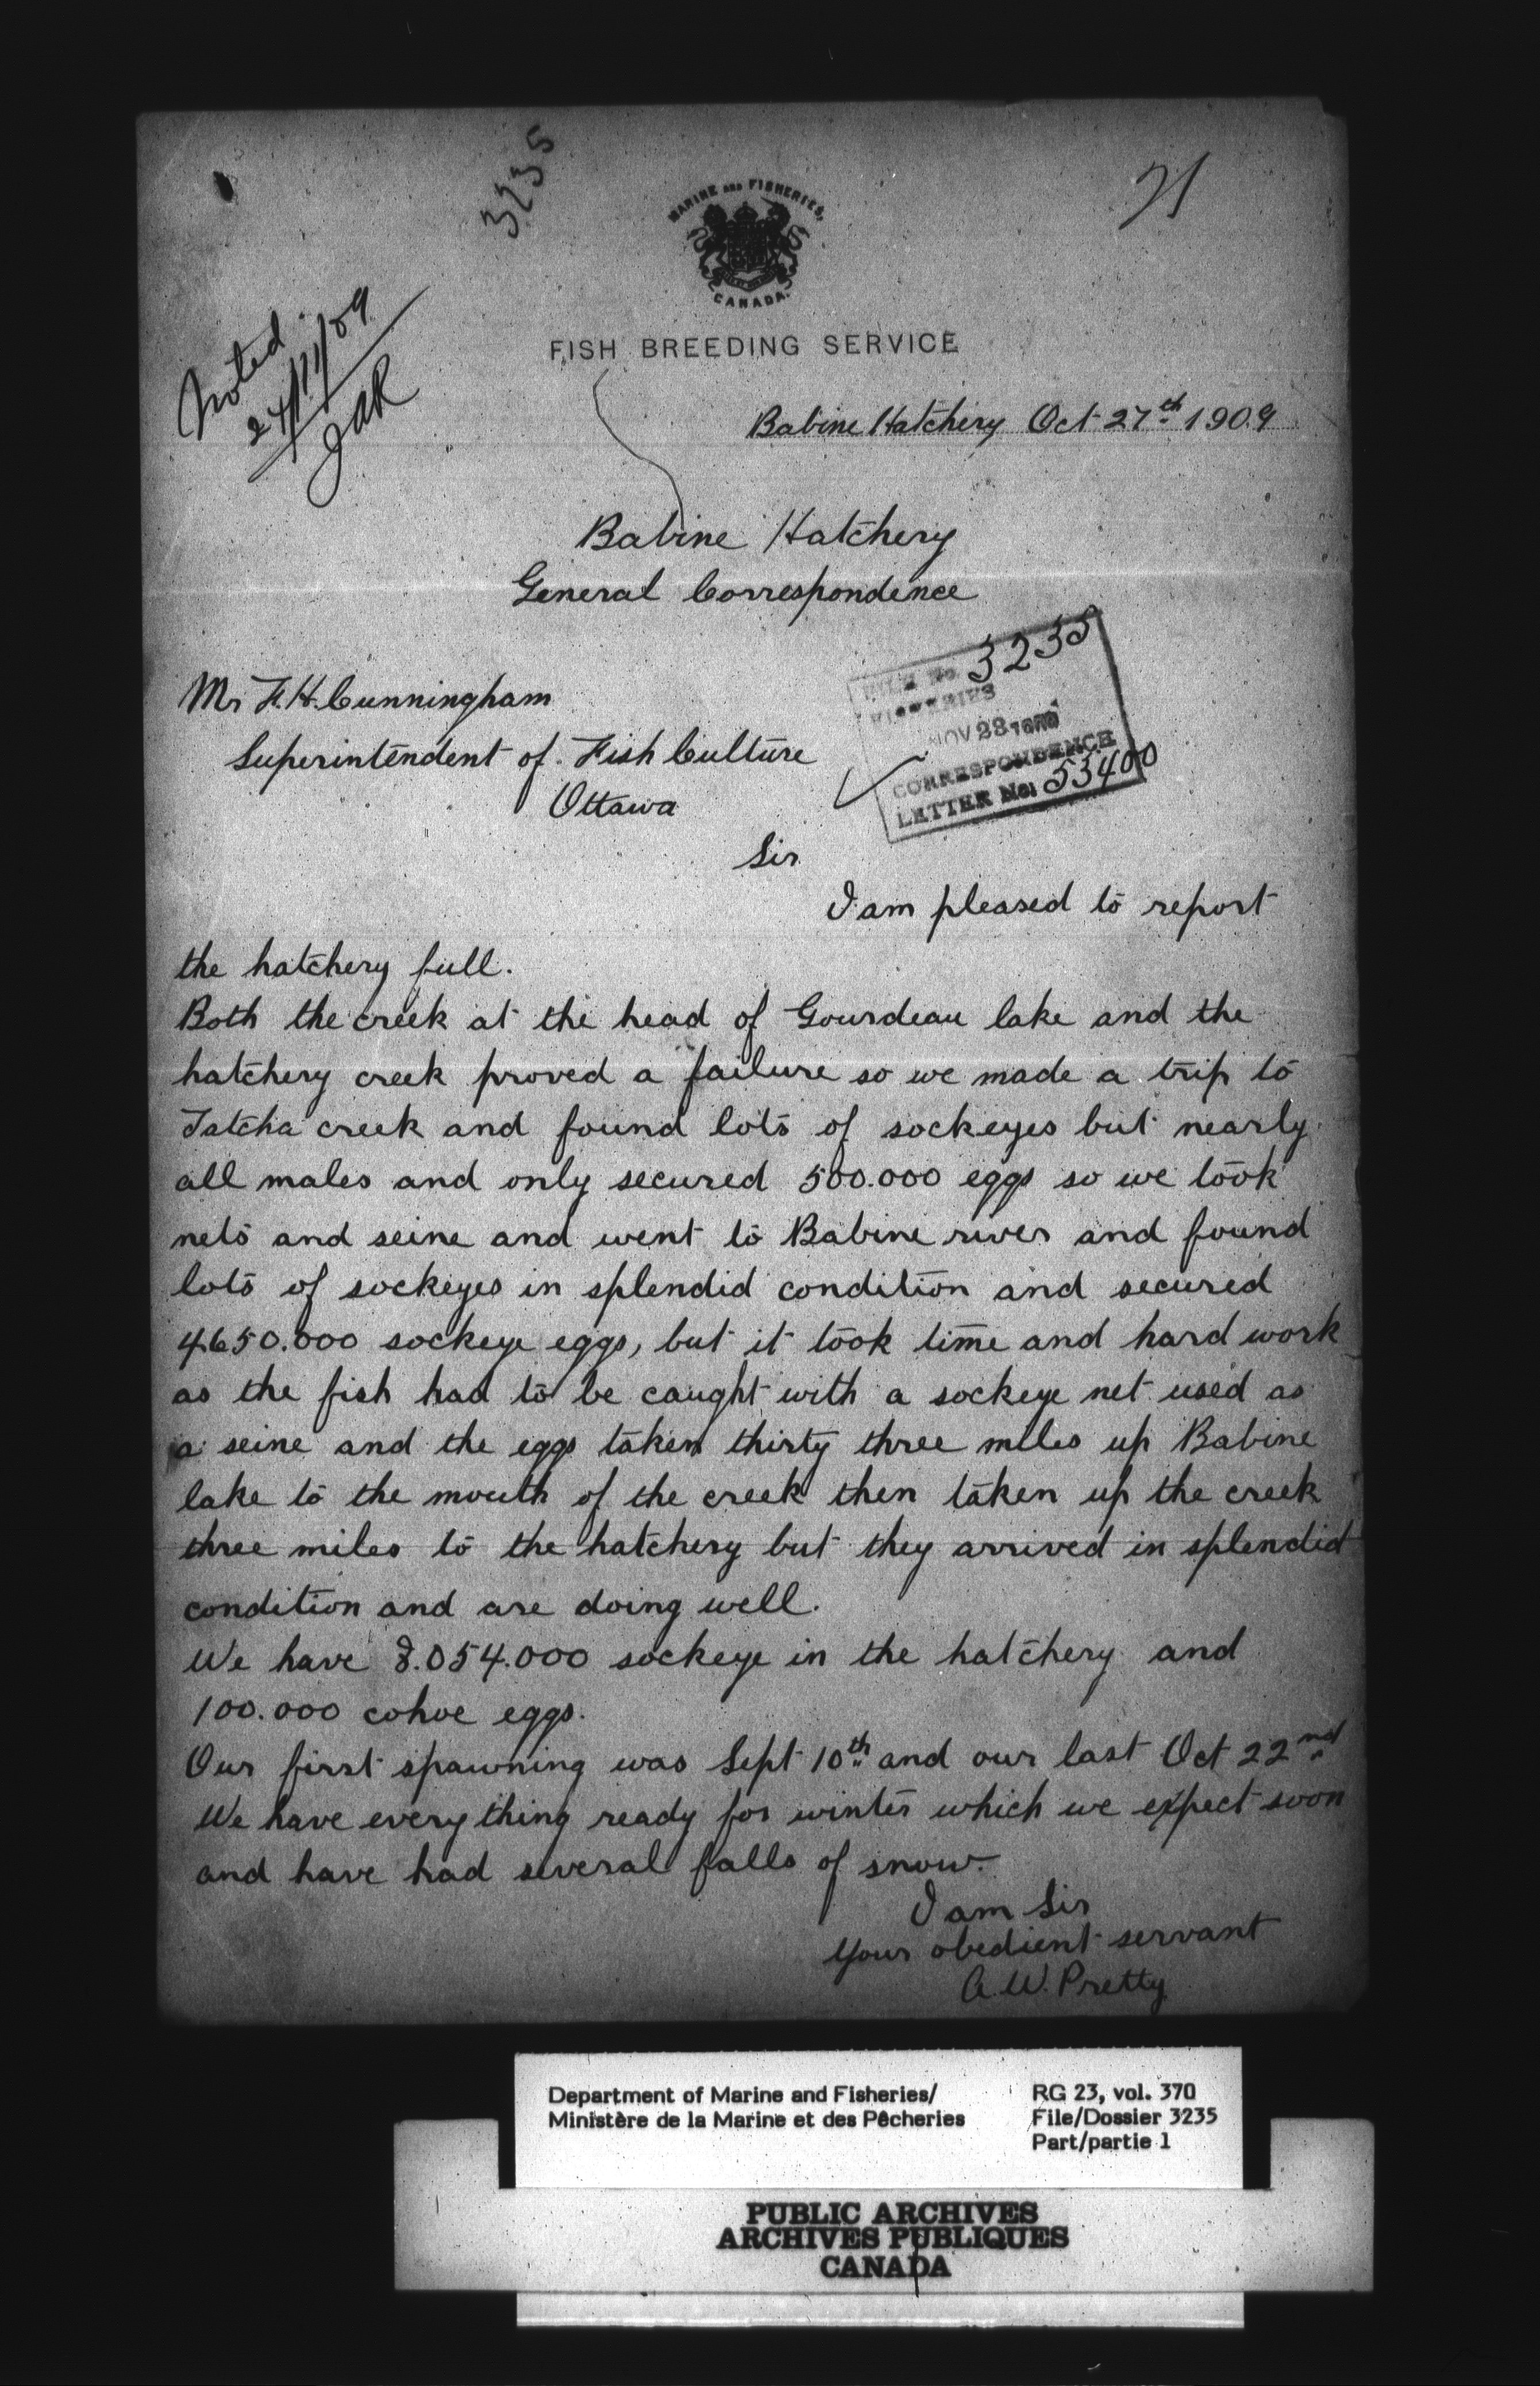 3235
21
MARINE AND FISHERIES,
CANADA.
FISH BREEDING SERVICE
Noted
24/11/09
JAR
Babine Hatchery Oct 27th 1909
Babine Hatchery
General Correspondence
Mr F. H. Cunningham
Superintendent of Fish Culture
Ottawa
FILE No. 3235
FISHERIES
NOV 23
CORRESPONDENCE
LETTER No: 53400
Sir
I am pleased to report
the hatchery full.
Both the creek at the head of Gourdeau lake and the
hatchery creek proved a failure so we made a trip to
Tatcha creek and found lots of sockeyes but nearly
all males and only secured 500.000 eggs so we took
nets and seine and went to Babine river and found
lots of sockeyes in splendid condition and secured
4.650.000 sockeye eggs, but it took time and hard work
as the fish had to be caught with a sockeye net used as
a seine and the eggs taken thirty three miles up Babine
lake to the mouth of the creek then taken up the creek
three miles to the hatchery but they arrived in splendid
condition and are doing well.
We have 8.054.000 sockeye in the hatchery and
100.000 cohoe eggs.
Our first spawning was Sept 10th and our last Oct 22nd
We have every thing ready for winter which we expect soon
and have had several falls of snow.
I am Sir
Your obedient servant
A. W. Pretty
Department of Marine and Fisheries/
Ministère de la Marine et des Pêcheries
RG 23, vol. 370
File/Dossier 3235
Part/partie 1
PUBLIC ARCHIVES
ARCHIVES PUBLIQUES
CANADA